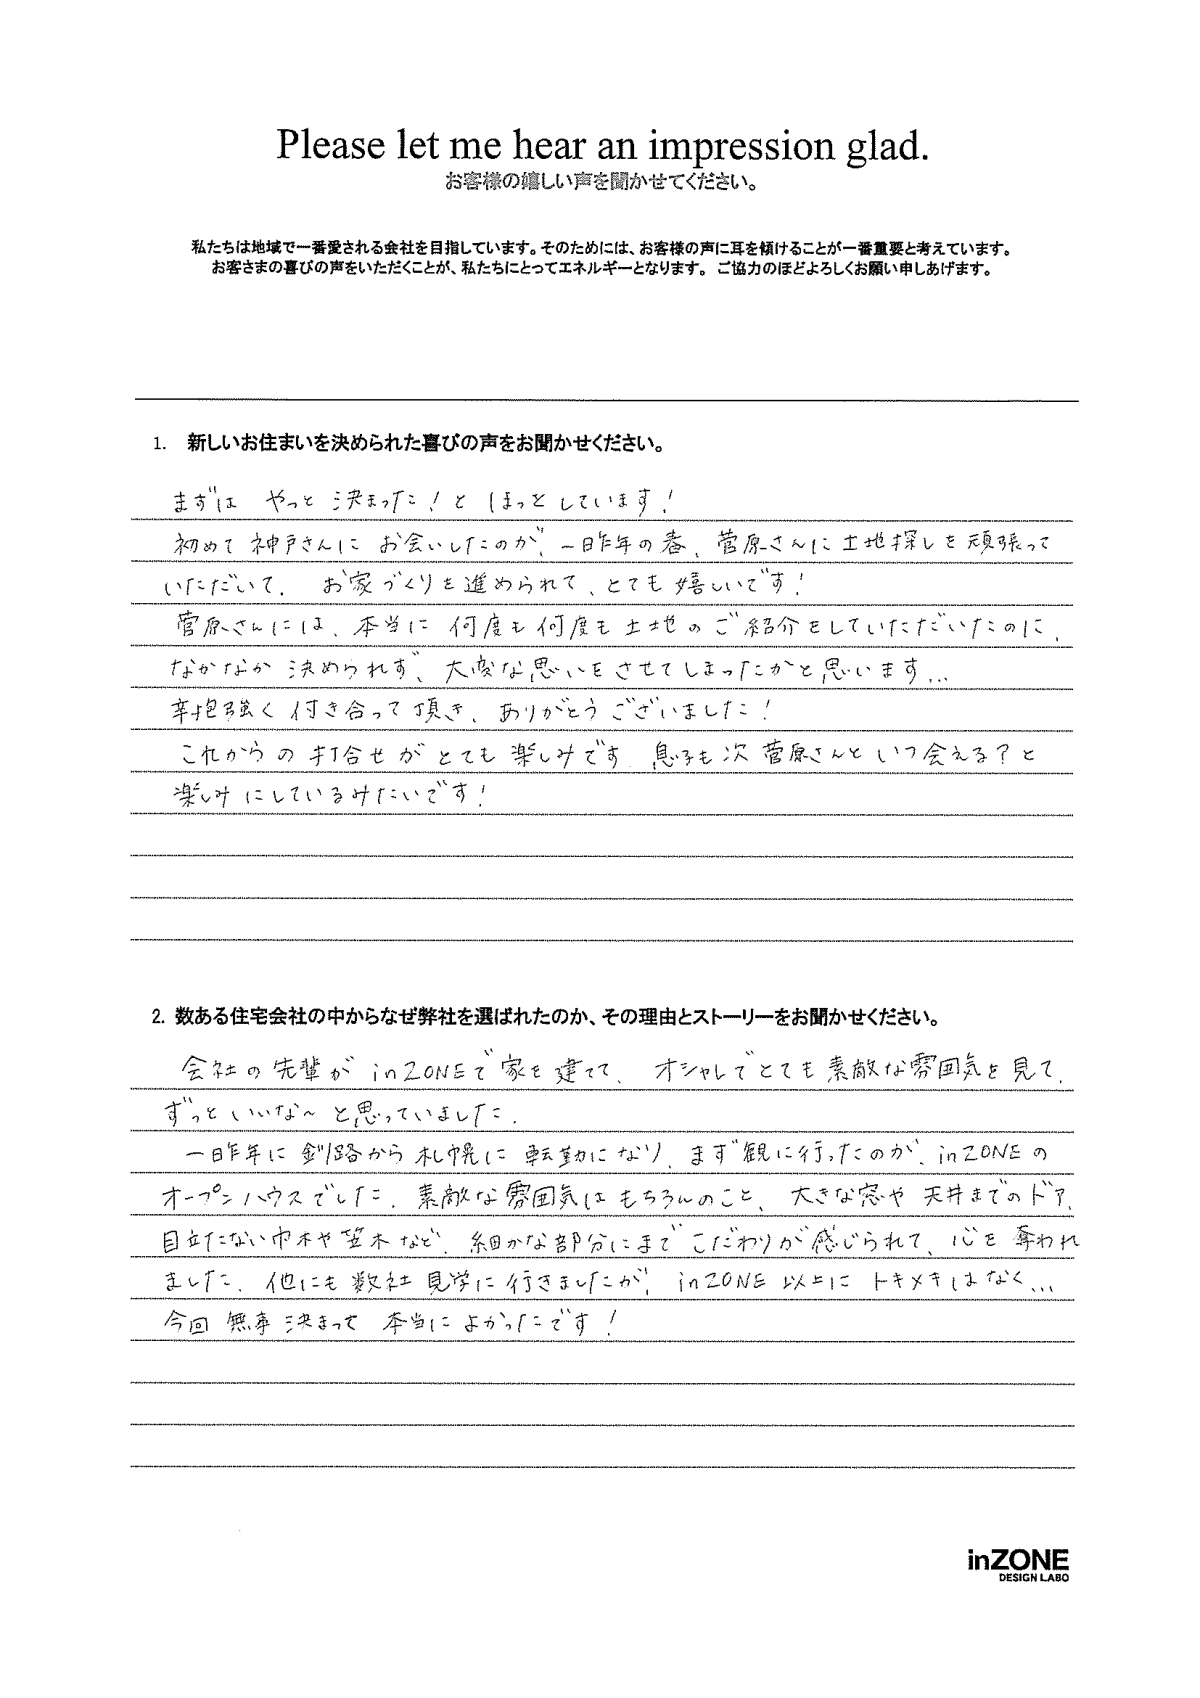 Please let me hear an impression glad.
お客様の嬉しい声を聞かせてください。
私たちは地域で一番愛される会社を目指しています。そのためには、お客様の声に耳を傾けることが一番重要と考えています。
お客さまの喜びの声をいただくことが、私たちにとってエネルギーとなります。 ご協力のほどよろしくお願い申しあげます。
1. 新しいお住まいを決められた喜びの声をお聞かせください。
まずは やっと決まった！と ほっとしています！
初めて神戸さんに お会いしたのが、一昨年の春、菅原さんに土地探しを頑張って
いただいて、 お家づくりを進められて、とても嬉しいです！
菅原さんには、本当に 何度も何度も土地のご紹介をしていただいたのに、
なかなか決められず、大変な思いをさせてしまったかと思います...
辛抱強く付き合って頂き、ありがとうございました！
これからの打合せがとても楽しみです。息子も次菅原さんといつ会える？と
楽しみにしているみたいです！
2. 数ある住宅会社の中からなぜ弊社を選ばれたのか、その理由とストーリーをお聞かせください。
会社の先輩がinZONEで家を建てて、 オシャレでとても素敵な雰囲気を見て、
ずっといいな〜と思っていました。
一昨年に釧路から札幌に転勤になり、まず観に行ったのが、inZONEの
オープンハウスでした。素敵な雰囲気はもちろんのこと、大きな窓や天井までのドア、
目立たない巾木や笠木など、細かな部分にまでこだわりが感じられて、心を奪われ
ました。他にも数社見学に行きましたが、inZONE以上にトキメキはなく...
今回無事決まって 本当によかったです！
inZONE
DESIGN LABO